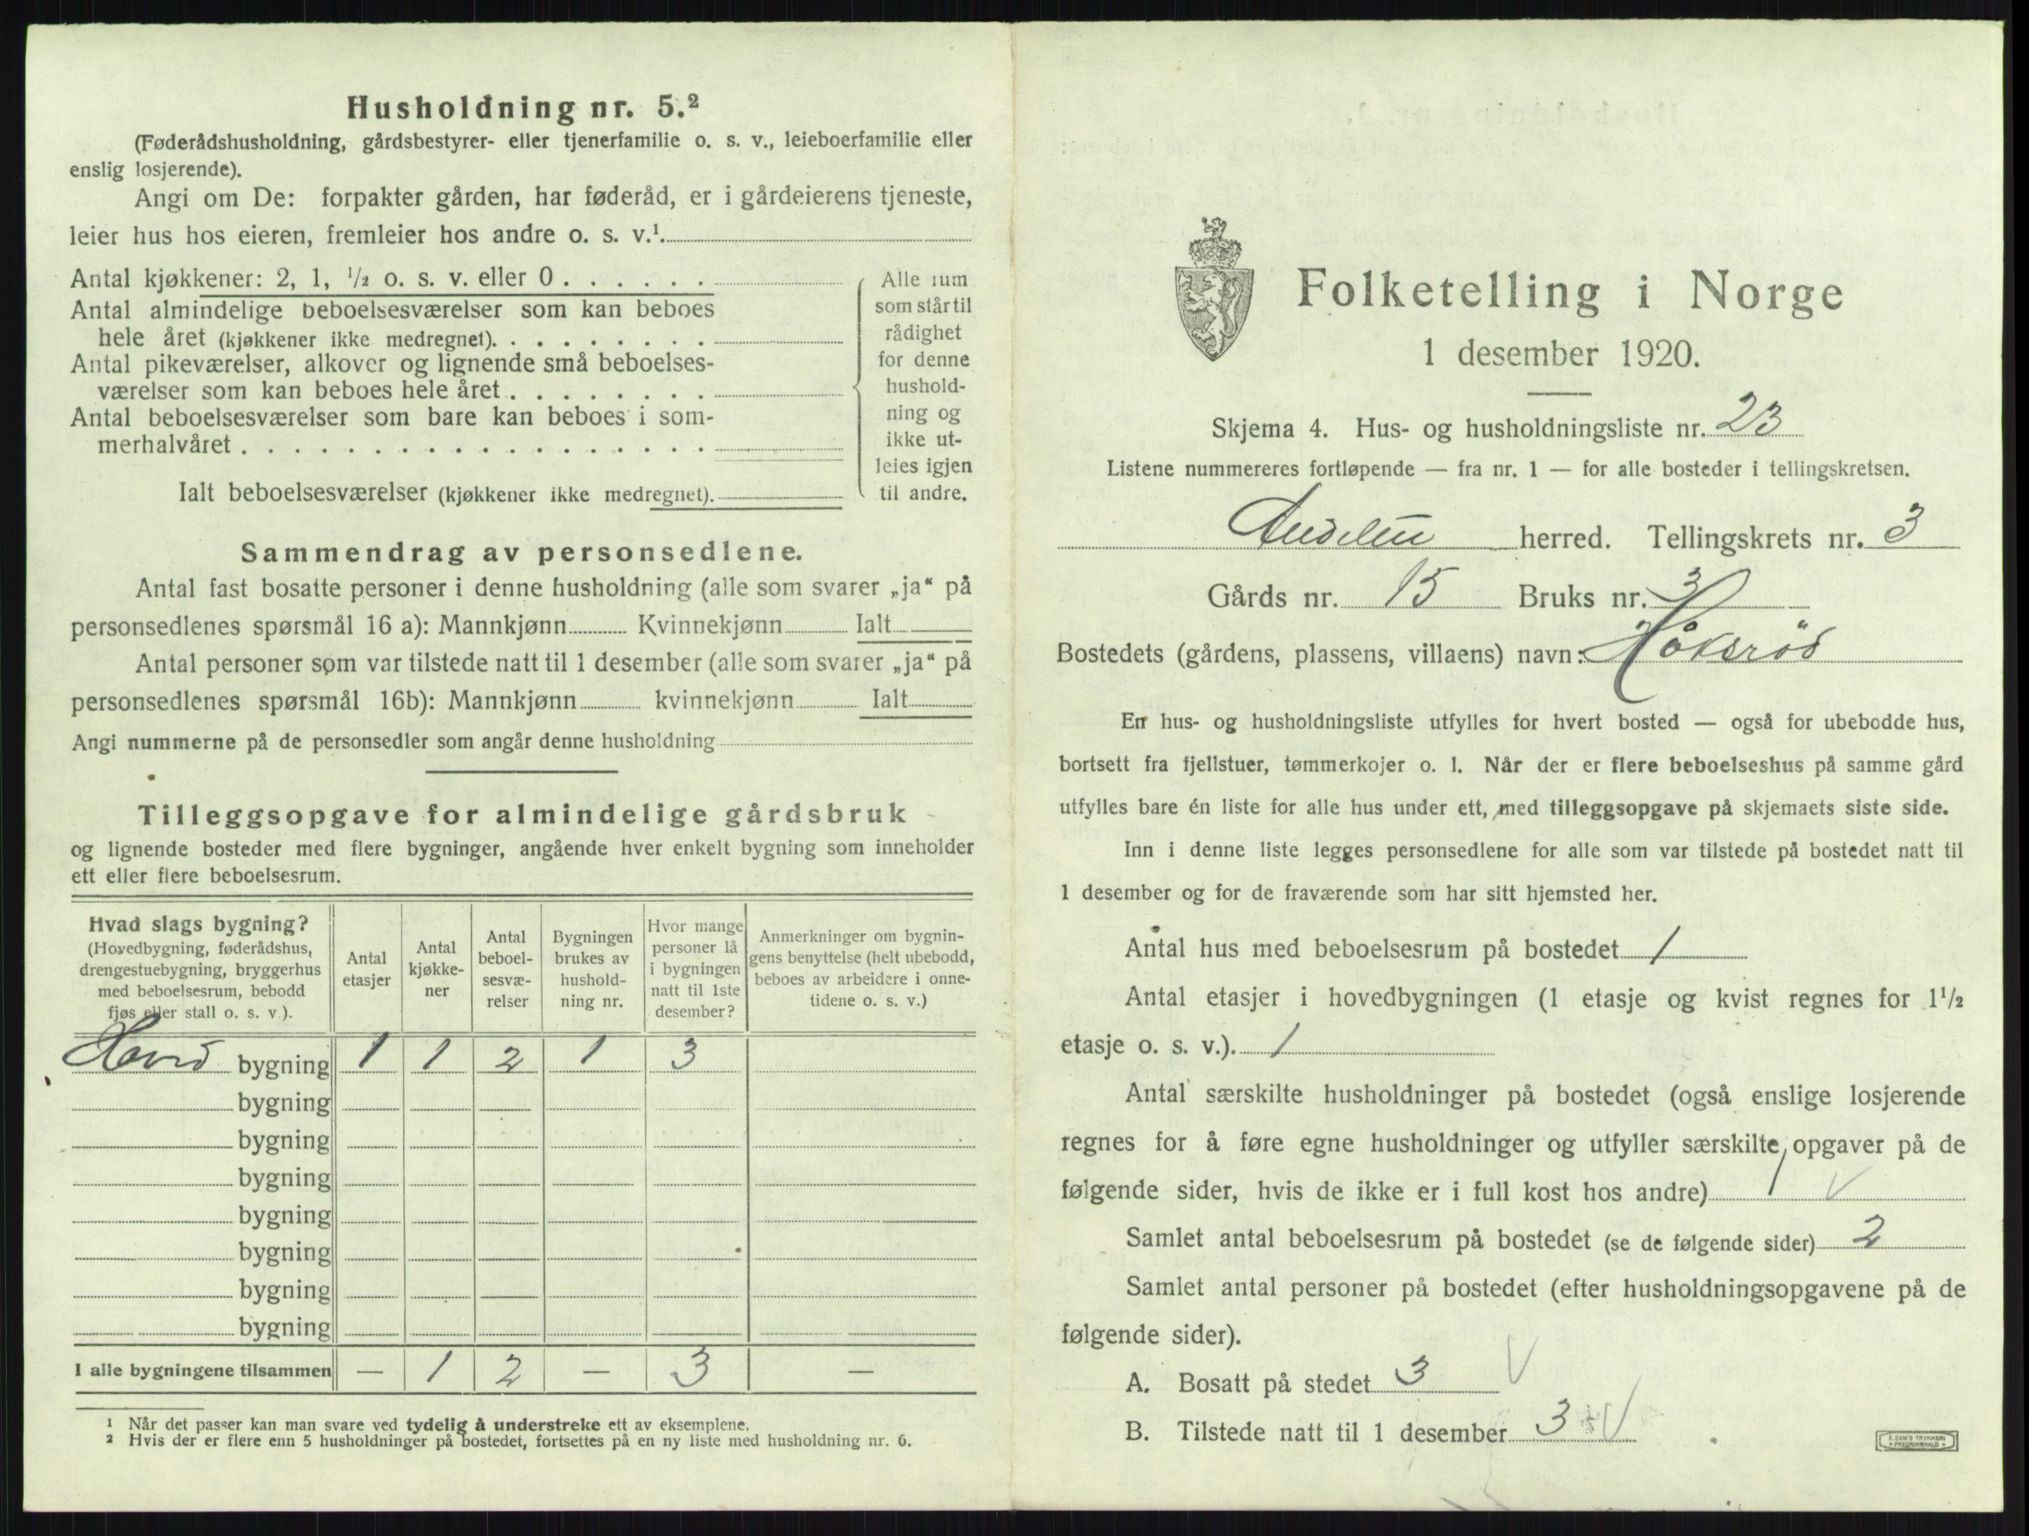 Husholdning nr. 5.²
(Føderådshusholdning, gårdsbestyrer- eller tjenerfamilie o. s. v., leieboerfamilie eller
enslig losjerende).
Angi om De: forpakter gården, har føderåd, er i gårdeierens tjeneste,
leier hus hos eieren, fremleier hos andre o. s. v.¹
Antal kjøkkener: 2, 1, ½ o. s. v. eller 0 . . . . . .
Antal almindelige beboelsesværelser som kan beboes
hele året (kjøkkener ikke medregnet). . . . . . . . .
Antal pikeværelser, alkover og lignende små beboelses-
værelser som kan beboes hele året . . . . . . . .
Antal beboelsesværelser som bare kan beboes i som-
merhalvåret . . . . . . . . . . . . . . . . . .
Ialt beboelsesværelser (kjøkkener ikke medregnet).
Alle rum
som står til
rådighet
for denne
hushold-
ning og
ikke ut-
leies igjen
til andre.
Sammendrag av personsedlene.
Antal fast bosatte personer i denne husholdning (alle som svarer „ja“ på
personsedlenes spørsmål 16 a): Mannkjønn Kvinnekjønn Ialt
Antal personer som var tilstede natt til 1 desember (alle som svarer „ja“ på
personsedlenes spørsmål 16b): Mannkjønn kvinnekjønn Ialt
Angi nummerne på de personsedler som angår denne husholdning
Tilleggsopgave for almindelige gårdsbruk
og lignende bosteder med flere bygninger, angående hver enkelt bygning som inneholder
ett eller flere beboelsesrum.
Hvad slags bygning?
(Hovedbygning, føderådshus,
drengestuebygning, bryggerhus
med beboelsesrum, bebodd
fjøs eller stall o. s. v.).
Antal
etasjer
Antal
kjøkke-
ner
Antal
beboel-
sesvæ-
relser
Bygningen
brukes av
hushold-
ning nr.
Hvor mange
personer lå
i bygningen
natt til 1ste
desember?
Anmerkninger om bygnin-
gens benyttelse (helt ubebodd,
beboes av arbeidere i onne-
tidene o. s. v.)
Hoved bygning 1 1 2 1 3
bygning
bygning
bygning
bygning
bygning
bygning
bygning
I alle bygningene tilsammen — 1 2 — 3 —
¹ Når det passer kan man svare ved tydelig å understreke ett av eksemplene.
² Hvis der er flere enn 5 husholdninger på bostedet, fortsettes på en ny liste med husholdning nr. 6.
Folketelling i Norge
1 desember 1920.
Skjema 4. Hus- og husholdningsliste nr. 23
Listene nummereres fortløpende — fra nr. 1 — for alle bosteder i tellingskretsen.
herred. Tellingskrets nr. 3
Gårds nr. 15 Bruks nr. 3
Bostedets (gårdens, plassens, villaens) navn: Høksrød
En hus- og husholdningsliste utfylles for hvert bosted — også for ubebodde hus,
bortsett fra fjellstuer, tømmerkojer o. l. Når der er flere beboelseshus på samme gård
utfylles bare én liste for alle hus under ett, med tilleggsopgave på skjemaets siste side.
Inn i denne liste legges personsedlene for alle som var tilstede på bostedet natt til
1 desember og for de fraværende som har sitt hjemsted her.
Antal hus med beboelsesrum på bostedet 1
Antal etasjer i hovedbygningen (1 etasje og kvist regnes for 1½
etasje o. s. v.). 1
Antal særskilte husholdninger på bostedet (også enslige losjerende
regnes for å føre egne husholdninger og utfyller særskilte opgaver på de
følgende sider, hvis de ikke er i full kost hos andre) 1
Samlet antal beboelsesrum på bostedet (se de følgende sider) 2
Samlet antal personer på bostedet (efter husholdningsopgavene på de
følgende sider).
A. Bosatt på stedet 3
B. Tilstede natt til 1 desember 3